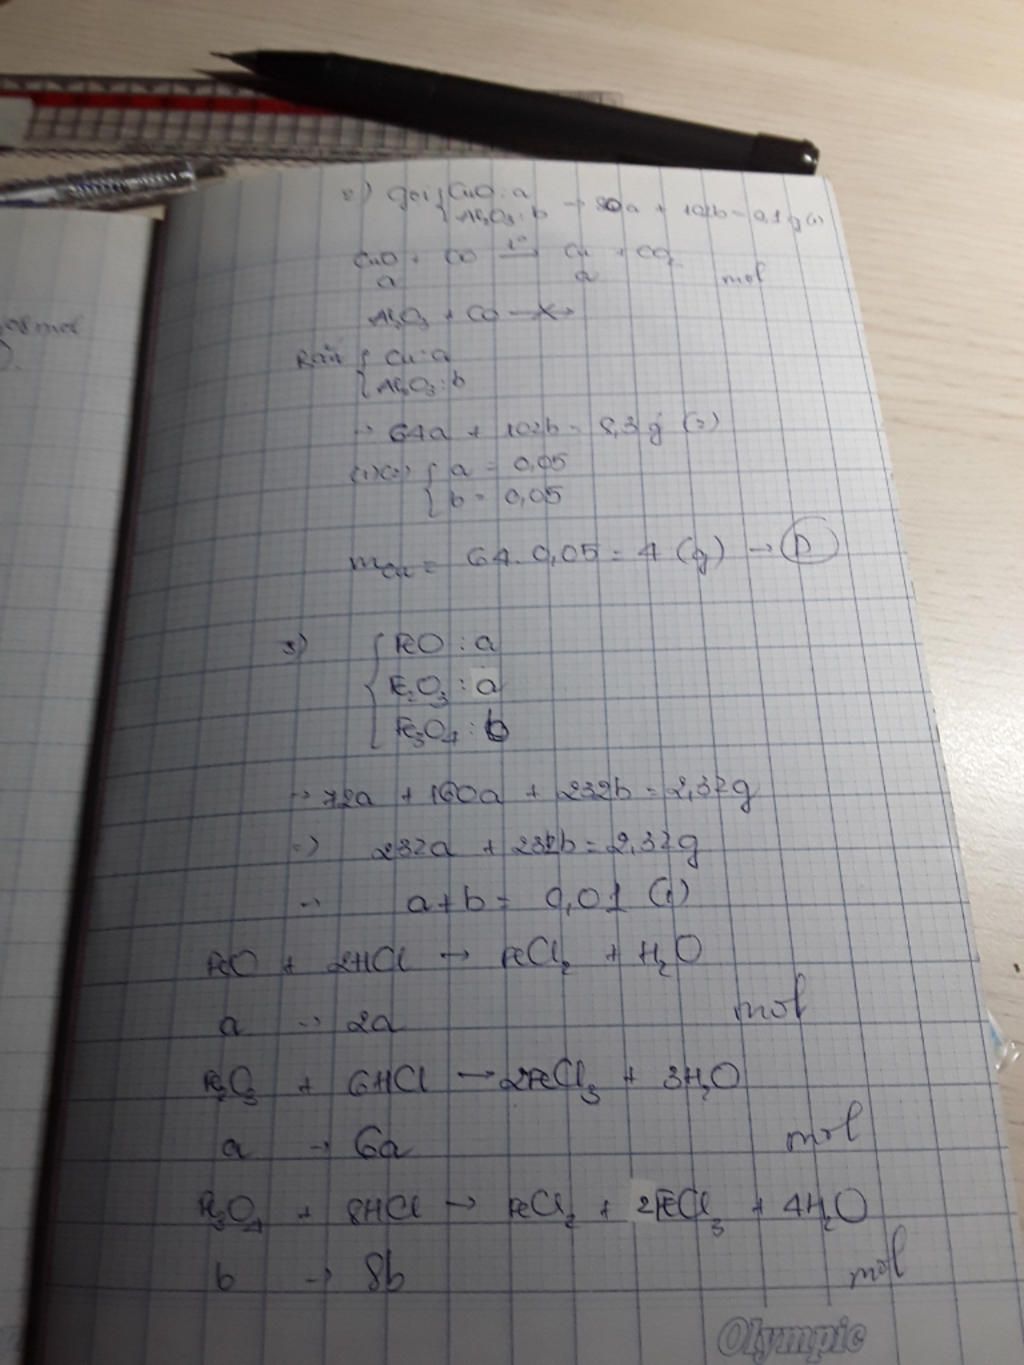 2) gọi { CuO : a
Al2O3 : b → 80a + 102b = 9,1g (1)
CuO + CO →(t°) Cu + CO2
a a mol
,08 mol
Al2O3 + CO —×→
Rắn { Cu : a
{ Al2O3 : b
→ 64a + 102b = 8,3g (2)
(1)(2) { a = 0,05
{ b = 0,05
mCu = 64.0,05 = 4 (g) → D
3) { FeO : a
{ Fe2O3 : a
{ Fe3O4 : b
→ 72a + 160a + 232b = 2,32g
=> 232a + 232b = 2,32g
→ a+b = 0,01 (1)
FeO + 2HCl → FeCl2 + H2O
a → 2a mol
Fe2O3 + 6HCl → 2FeCl3 + 3H2O
a → 6a mol
Fe3O4 + 8HCl → FeCl2 + 2FeCl3 + 4H2O
b → 8b mol
Olympic